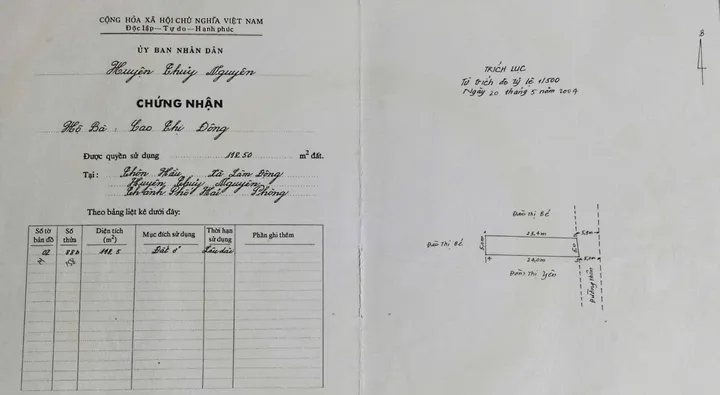 CỘNG HÒA XÃ HỘI CHỦ NGHĨA VIỆT NAM
Độc lập—Tự do—Hạnh phúc
ỦY BAN NHÂN DÂN
Huyện Thủy Nguyên
CHỨNG NHẬN
Hộ Bà : Cao Thị Đông
Được quyền sử dụng 118.50 m² đất.
Tại : Thôn Hầu, Xã Lâm Động
Huyện Thủy Nguyên
Thành Phố Hải Phòng
Theo bảng liệt kê dưới đây:
Số tờ bản đồ
Số thửa
Diện tích (m²)
Mục đích sử dụng
Thời hạn sử dụng
Phần ghi thêm
02 118.5 Đất ở Lâu dài
158
B
TRÍCH LỤC
Từ trích đo tỷ lệ 1/500
Ngày 20 tháng 5 năm 2004
Đoàn Thị Bể
5,0m
Đoàn Thị Bể
Đoàn Thị Yên
Đường thôn